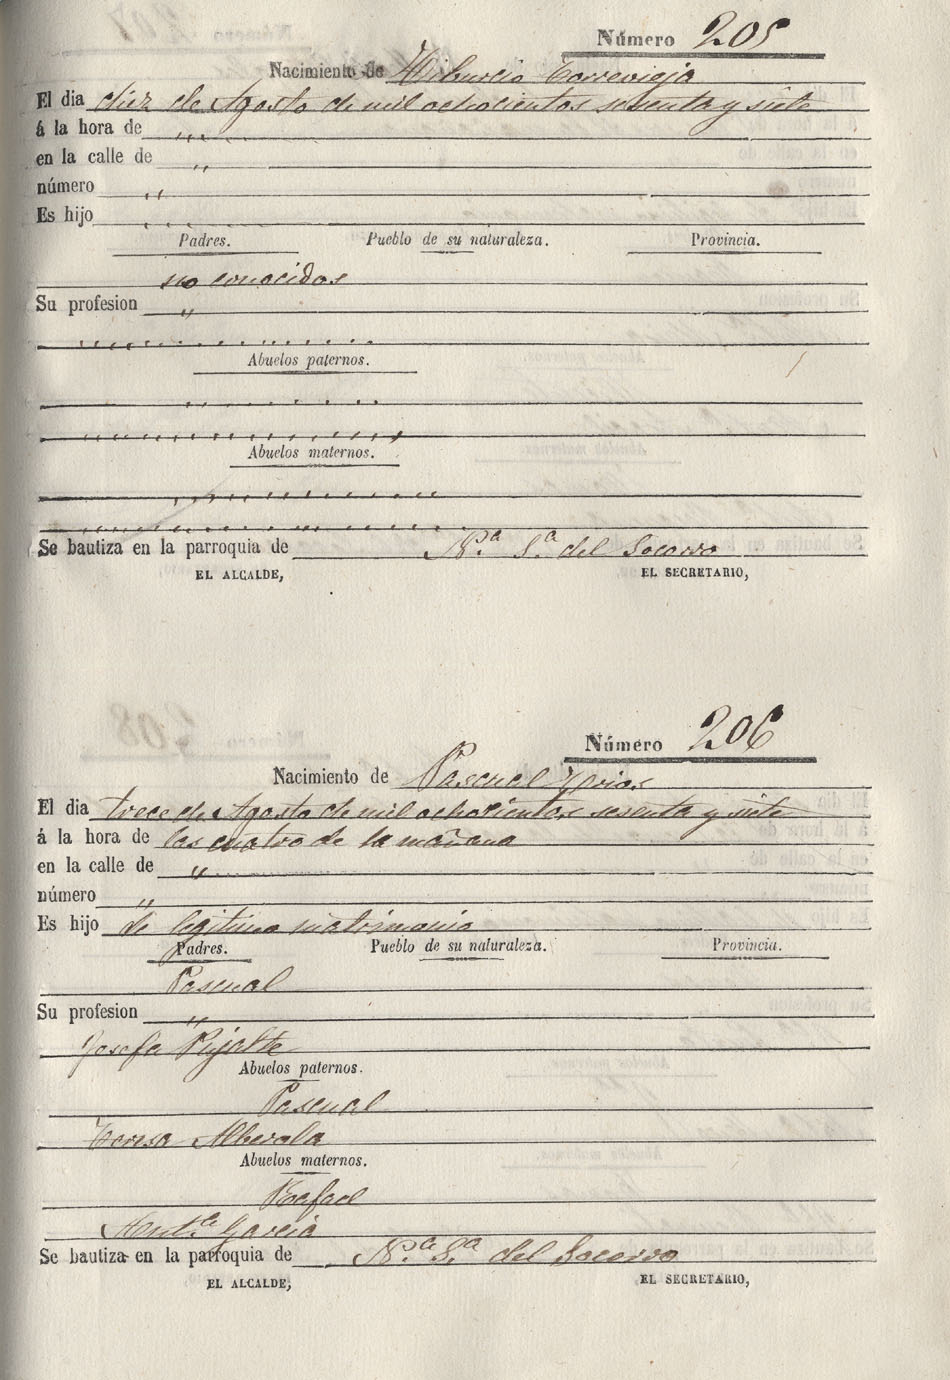 Número 205
Nacimiento de Tiburcio Torrevieja
El dia diez de Agosto de mil ochocientos sesenta y siete
á la hora de "
en la calle de "
número "
Es hijo
Padres. Pueblo de su naturaleza. Provincia.
no conocidos
Su profesion "
Abuelos paternos.
Abuelos maternos.
Se bautiza en la parroquia de Nª. Sª. del Socorro
EL ALCALDE, EL SECRETARIO,
Número 206
Nacimiento de Pascual
El dia trece de Agosto de mil ochocientos sesenta y siete
á la hora de las cuatro de la mañana
en la calle de "
número "
Es hijo de legitimo matrimonio
Padres. Pueblo de su naturaleza. Provincia.
Pascual
Su profesion "
Josefa Pujalte
Abuelos paternos.
Pascual
Teresa Alberola
Abuelos maternos.
Rafael
Antª. Garcia
Se bautiza en la parroquia de Nª. Sª. del Socorro
EL ALCALDE, EL SECRETARIO,